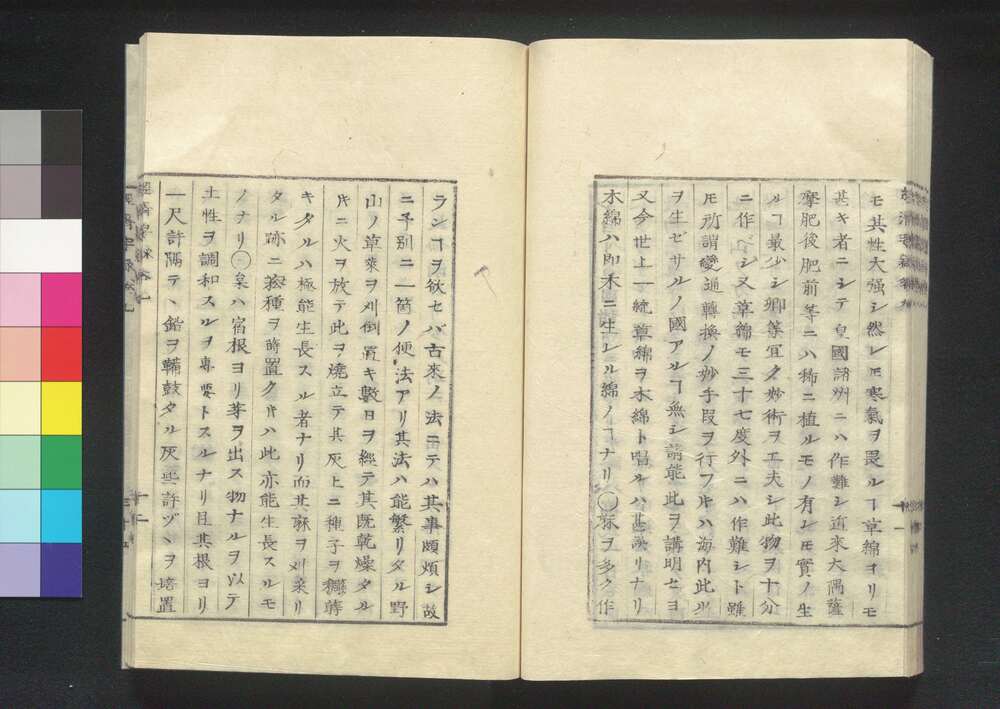 モ其性大强シ然レモ寒氣ヲ畏ルヿ草綿ヨリモ
甚キ者ニシテ皇國諸州ニハ作難シ近來大隅薩
摩肥後肥前等ニハ稀ニ植ルモノ有レモ實ノ生
ルヿ最少シ卿等宜ク妙術ヲ工夫シ此物ヲ十分
ニ作ベシ又草綿モ三十七度外ニハ作難シト雖
𪜈所謂變通轉換ノ妙手段ヲ行フ𪜈ハ海内此
ヲ生ゼザルノ國アルヿ無シ請能此ヲ講明セヨ
又今世上一統草綿ヲ木綿ト唱ルハ甚誤リナリ
木綿ハ即木ニ生レル綿ノヿナリ〇麻ヲ多ク作
ランヿヲ欲セバ古來ノ法ニテハ其事頗煩シ故
ニ予別ニ一箇ノ便法アリ其法ハ能繁リタル野
山ノ草萊ヲ刈倒置キ數日ヲ經テ其既乾燥タル
𪜈ニ火ヲ放テ此ヲ燒立テ其灰上ニ種子ヲ穰蒔
キタルハ極能生長スル者ナリ而其麻ヲ刈采リ
タル跡ニ菘種ヲ蒔置ク𪜈ハ此亦能生長スルモ
ノナリ〇枲ハ宿根ヨリ芽ヲ出ス物ナルヲ以テ
土性ヲ調和スルヲ專要トスルナリ且其根ヨリ
一尺許隔テヽ鉛ヲ輔鼓タル灰些許ヅヽヲ培置